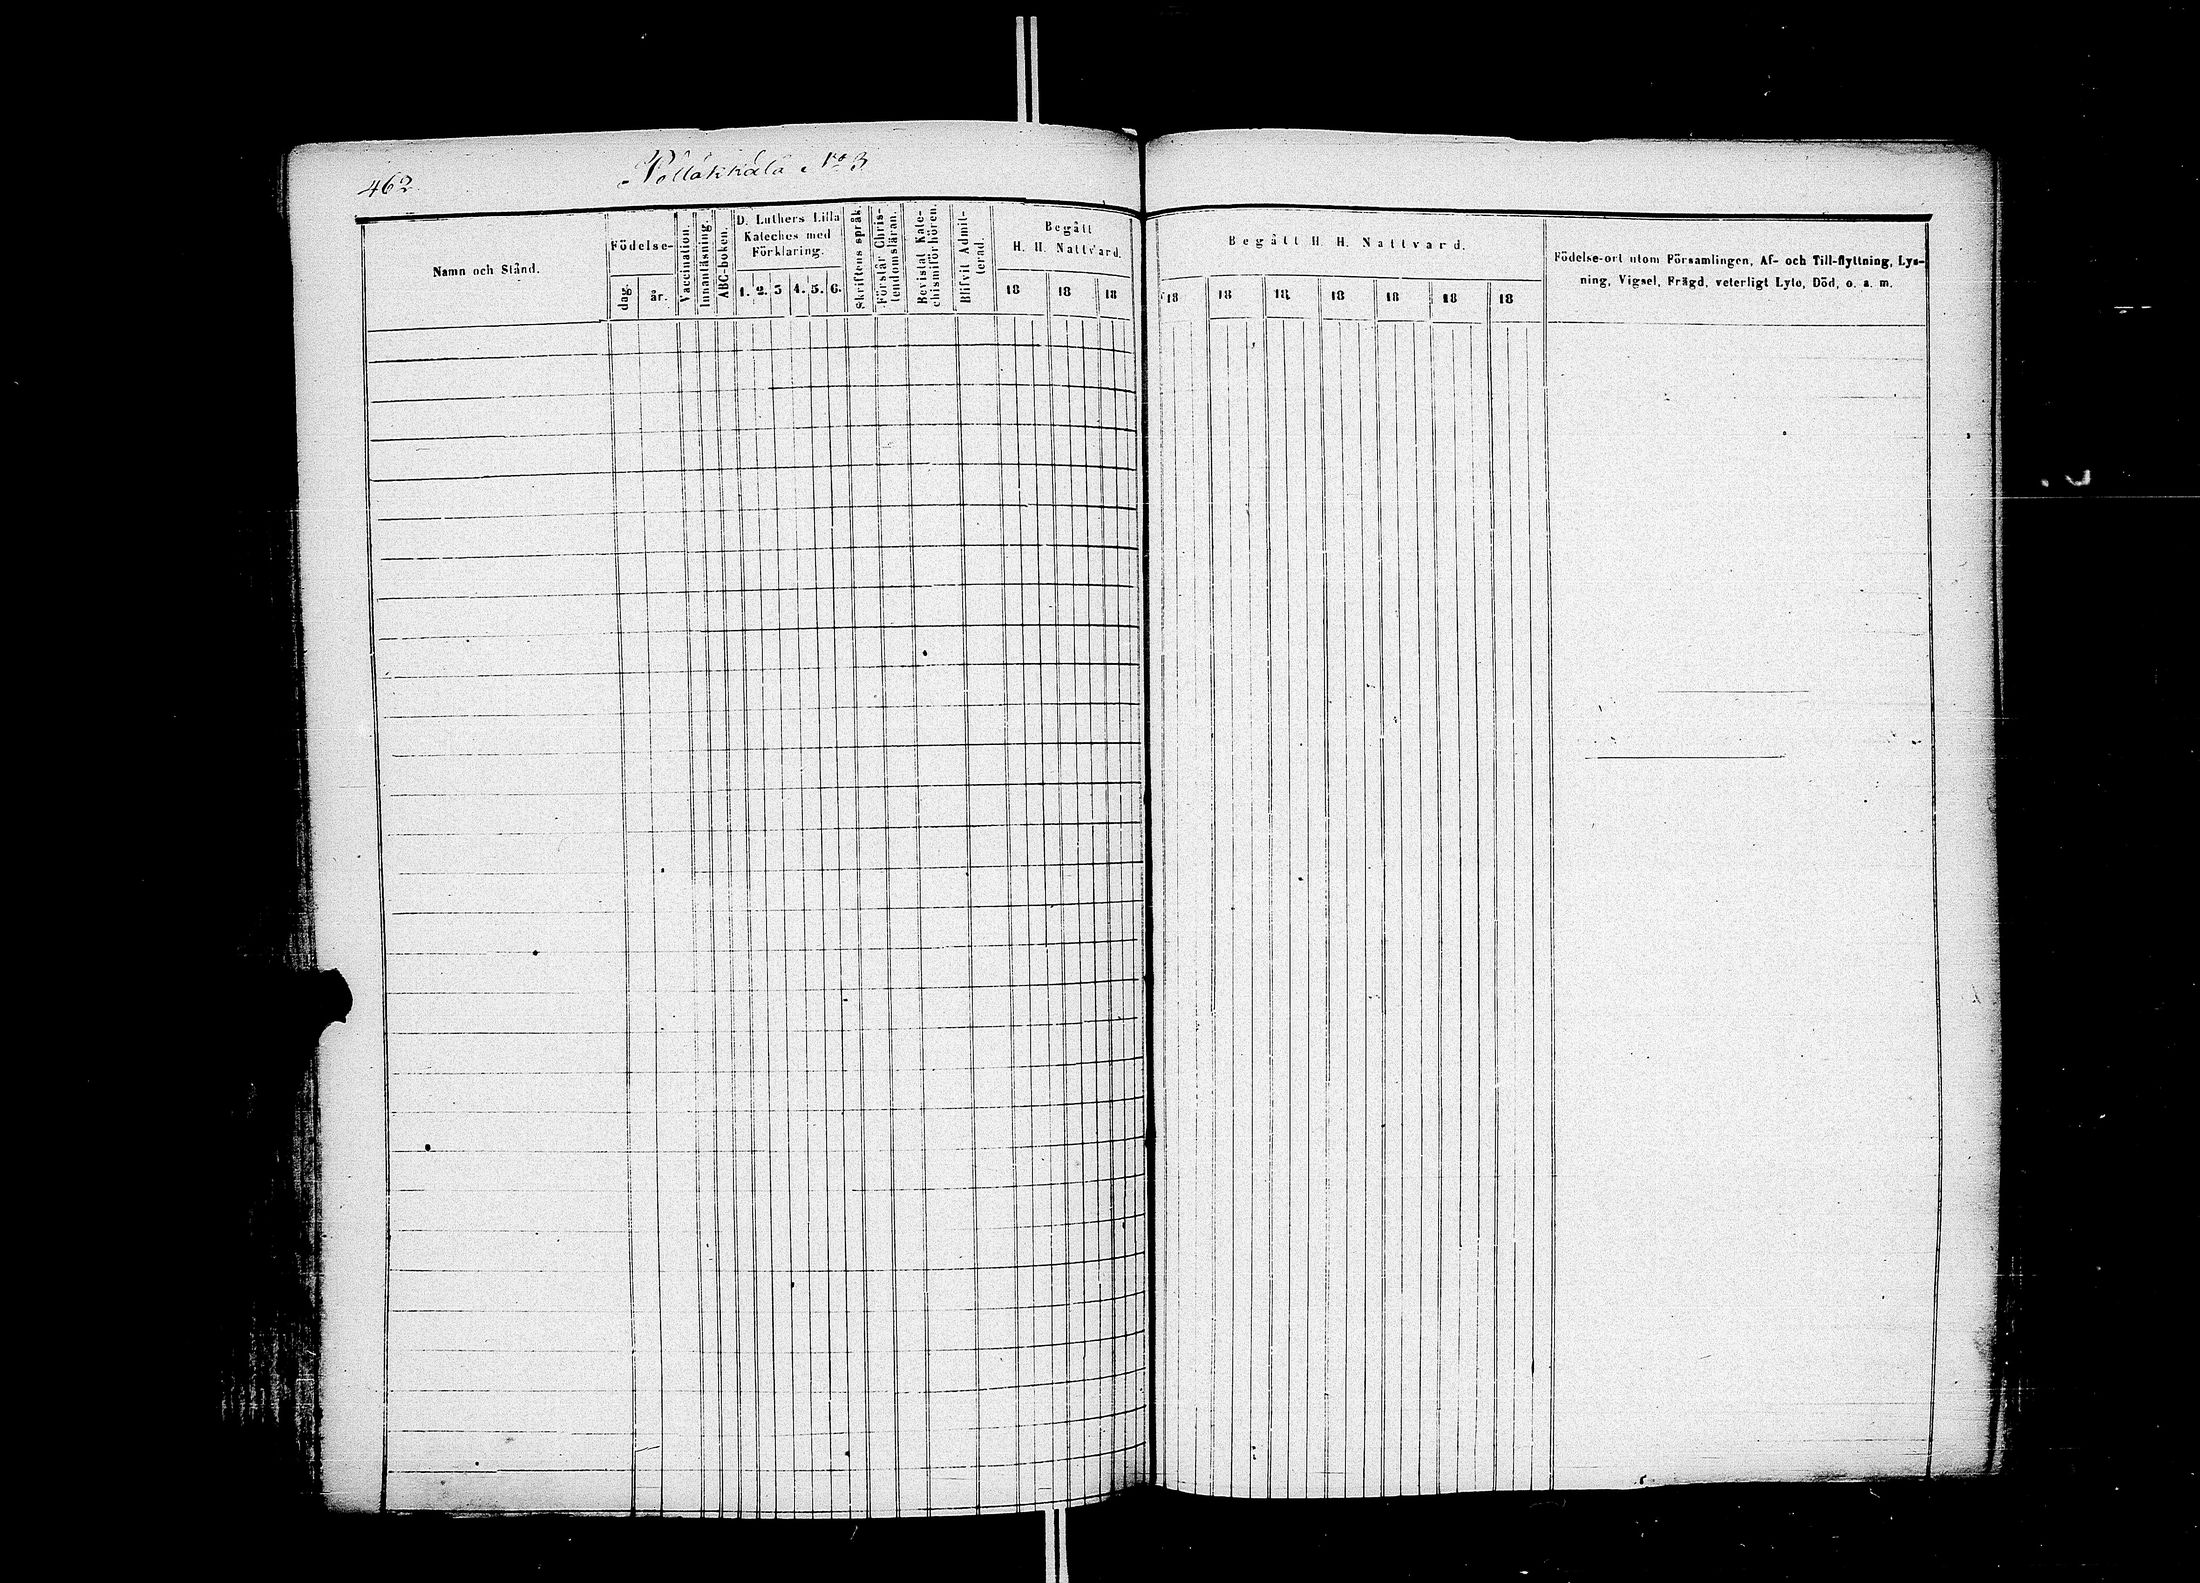 462.
Pöllakkala No 3
Namn och Stånd.
Födelse-
dag.
år.
Vaccination.
Innanläsning.
ABC-boken.
D. Luthers Lilla
Kateches med
Förklaring.
1. 2. 3 4. 5. 6.
Skriftens språk.
Förstår Chris-
tendomsläran.
Bevistat Kate-
chismiförhören.
Blifvit Admit-
terad.
Begått
H. H. Nattvard.
18 18 18
Begått H. H. Nattvard.
18 18 18 18 18 18 18
Födelse-ort utom Församlingen, Af- och Till-flyttning, Lys-
ning, Vigsel, Frägd, veterligt Lyte, Död, o. a. m.